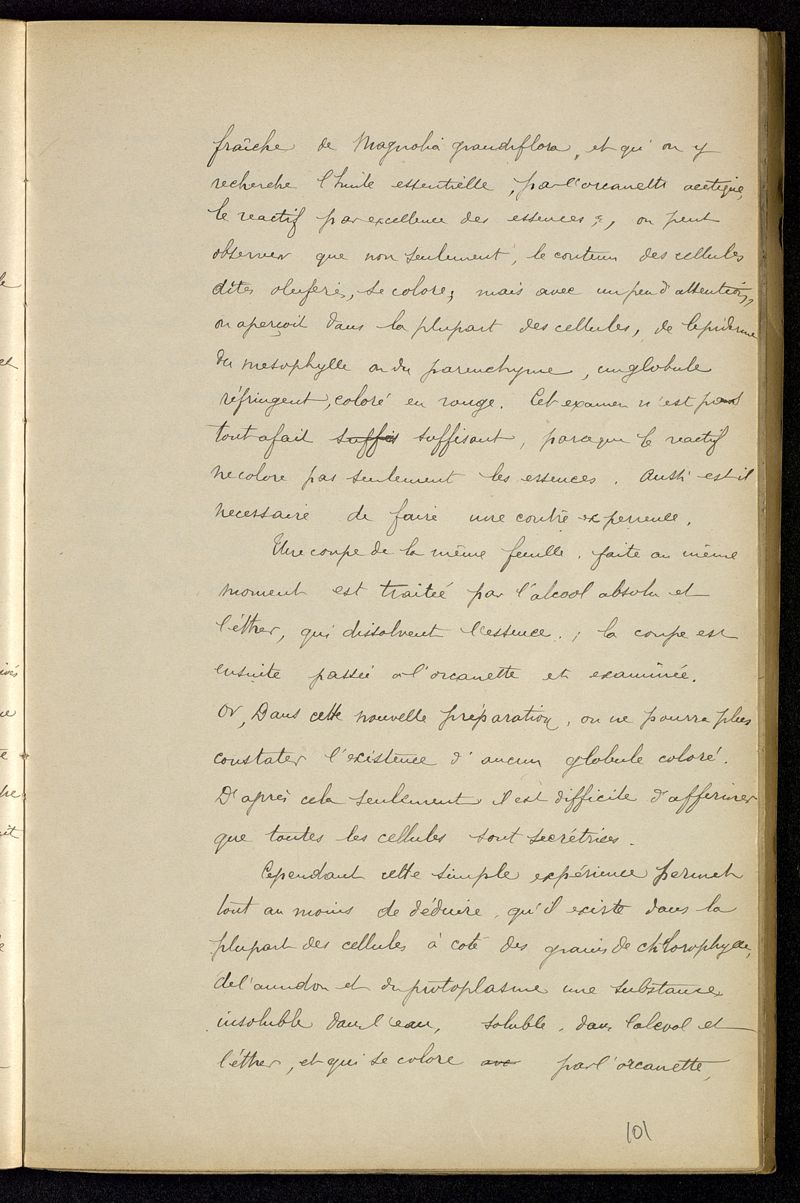 fraîche de Magnolia grandiflora, et qu'on y
recherche l'huile essentielle, par l'orcanette acétique,
le reactif par excellence des essences, on peut
observer que non seulement, le contenu des cellules
dites oleiferes, se colore; mais avec un peu d'attention,
on aperçoit dans la plupart des cellules, de l'epiderme
du mesophylle ou du parenchyme, un globule
réfringent, coloré en rouge. Cet examen n'est pas
tout a fait suffis suffisant, parceque le reactif
ne colore pas seulement les essences. Aussi est il
necessaire de faire une contre experience.
Une coupe de la même feuille, faite au même
moment est traitée par l'alcool absolu et
l'éther, qui dissolvent l'essence.; la coupe est
ensuite passée à l'orcanette et examinée.
Or, Dans cette nouvelle préparation, on ne pourra plus
constater l'existence d'aucun globule coloré.
D'après cela seulement il est difficile d'affirmer
que toutes les cellules sont secrétrices.
Cependant cette simple expérience permet
tout au moins de déduire, qu'il existe dans la
plupart des cellules à coté des grains de chlorophylle,
de l'amidon et du protoplasme une substance
insoluble dans l'eau, soluble, dans l'alcool et
l'éther, et qui se colore avec par l'orcanette,
101